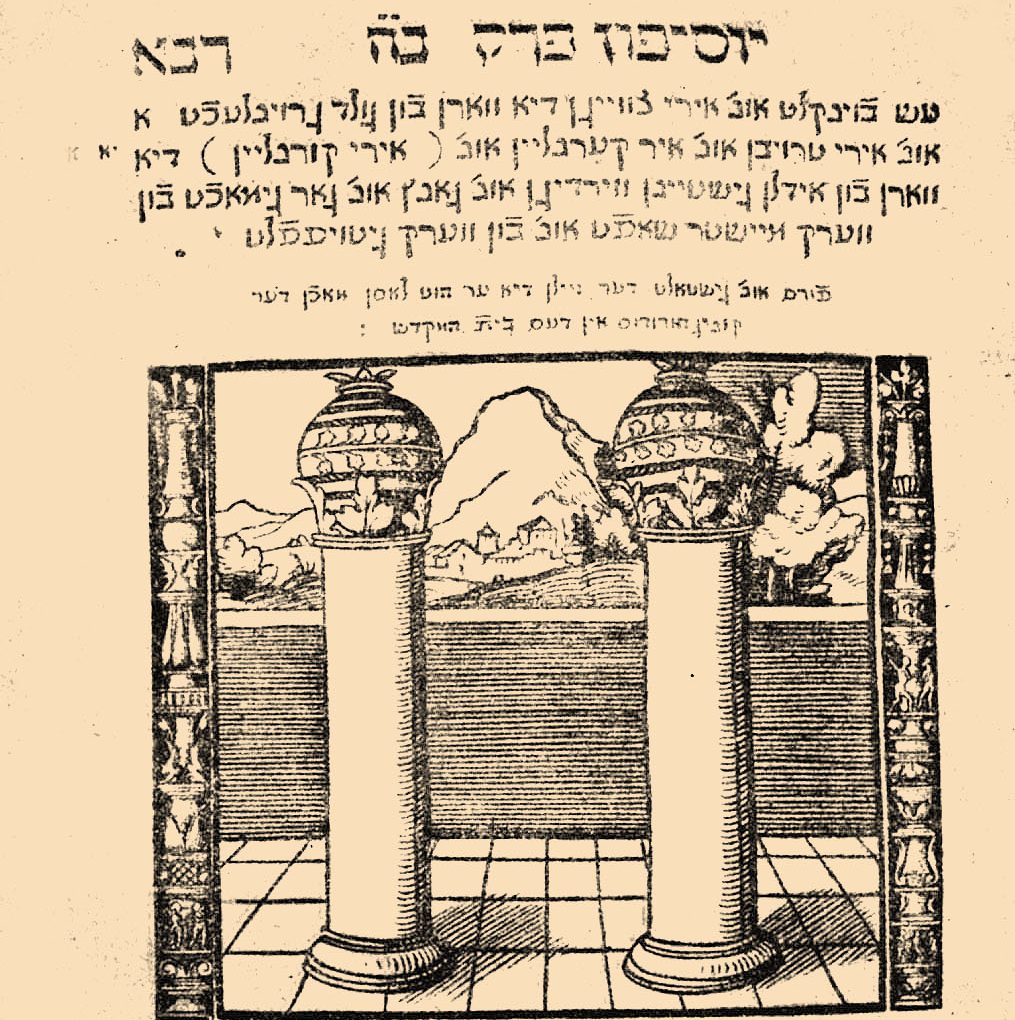 יוסיפון פרק נ̈ה̈ רכא
עש בֿוינקלט אונ׳ אירי צווייגן דיא ווארן בֿון גולד
אונ׳ אירי טרויבן אונ׳ איר קערנליין אונ׳ ( אירי קורנליין ) דיא
ווארן בֿון אידלן גישטיינן ווירדיגן אונ׳ גאנץ אונ׳ גאר גימאכֿט בֿון
ווערק מיישטר שאפֿט אונ׳ בֿון ווערק
פֿורם אונ׳ גישטאלט דער זיילן דיא ער הוט לאסן מאכֿן דער
קוניג הורודוס אין דעם בית המקדש :